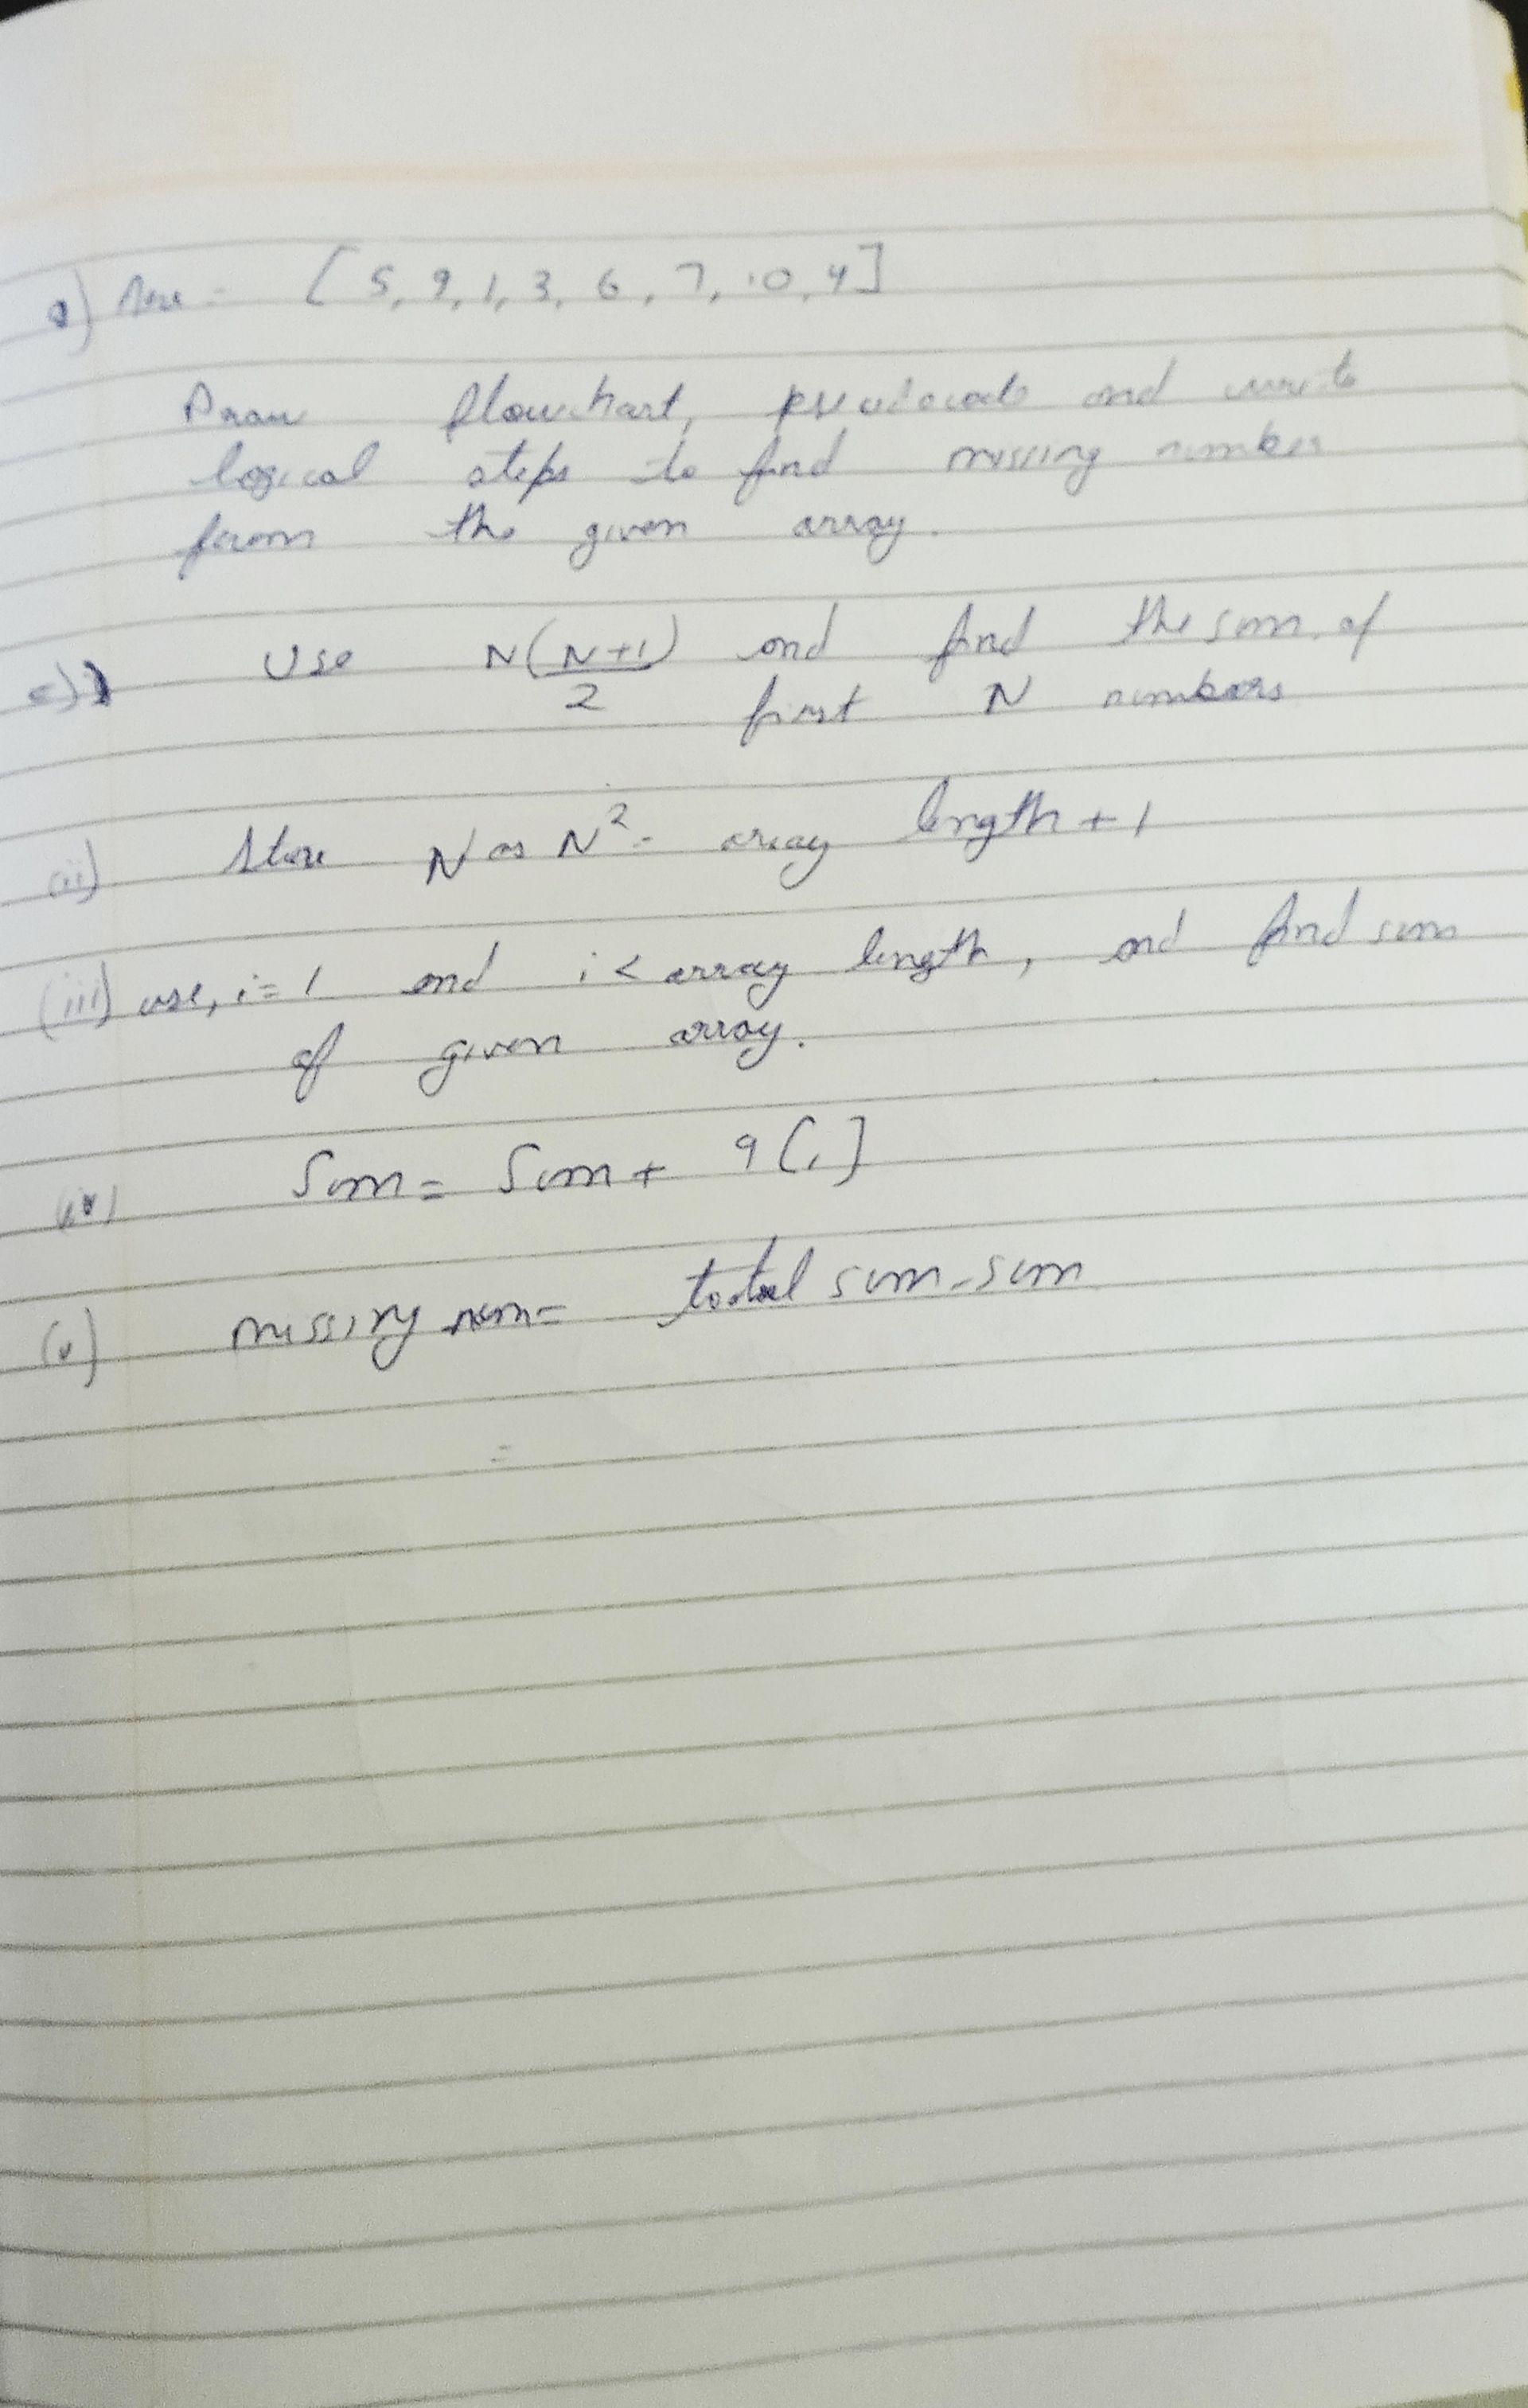 [ 5, 9, 1, 3, 6, 7, 10, 4 ]
Draw flowchart, pseudocode and write
logical steps to find missing number
from the given array.
Use N(N+1)/2 and find the sum of
first N numbers
(ii) store N as N = array length + 1
(iii) use, i = 1 and i < array length, and find sum
of given array.
(iv) Sum = Sum + a[i]
(v) missing num = total sum - sum
=